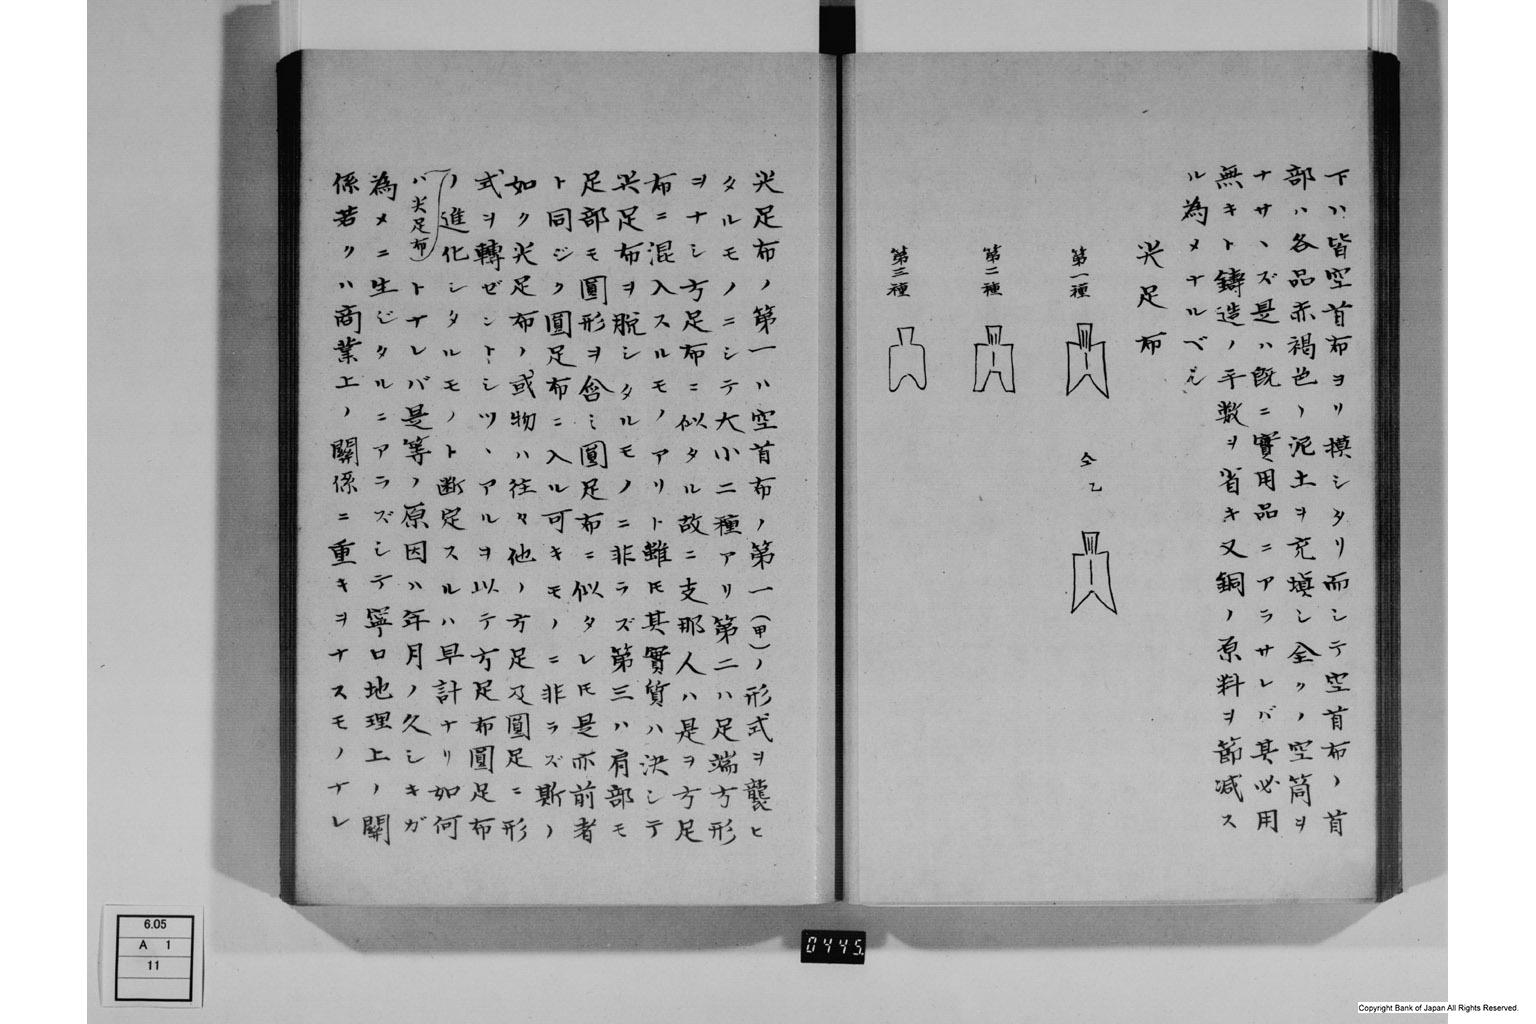 下ハ皆空首布ヨリ摸シタリ而シテ空首布ノ首
部ハ各品赤褐色ノ泥土ヲ充塡シ全クノ空筒ヲ
ナサヽズ是ハ既ニ實用品ニアラサレバ其必用
無キト鑄造ノ手數ヲ省キ又銅ノ原料ヲ節減ス
ル為メナルベシ
尖足布
第一種
仝乙
第二種
第三種
尖足布ノ第一ハ空首布ノ第一(甲)ノ形式ヲ襲ヒ
タルモノニシテ大小二種アリ第二ハ足端方形
ヲナシ方足布ニ似タル故ニ支那人ハ是ヲ方足
布ニ混入スルモノアリト雖𪜈其實質ハ決シテ
尖足布ヲ脱シタルモノニ非ラズ第三ハ肩部モ
足部モ圓形ヲ含ミ圓足布ニ似タレ𪜈是亦前者
ト同ジク圓足布ニ入ル可キモノニ非ラズ斯ノ
如ク尖足布ノ或物ハ往々他ノ方足及圓足ニ形
式ヲ轉ゼントシツヽアルヲ以テ方足布圓足布
ノ進化シタルモノト断定スルハ早計ナリ如何
バ尖足布トナレバ是等ノ原因ハ年月ノ久シキガ
為メニ生ジタルニアラズシテ寧ロ地理上ノ關
係若クハ商業上ノ關係ニ重キヲナスモノナレ
6.05
A 1
11
0445
Copyright Bank of Japan All Rights Reserved.